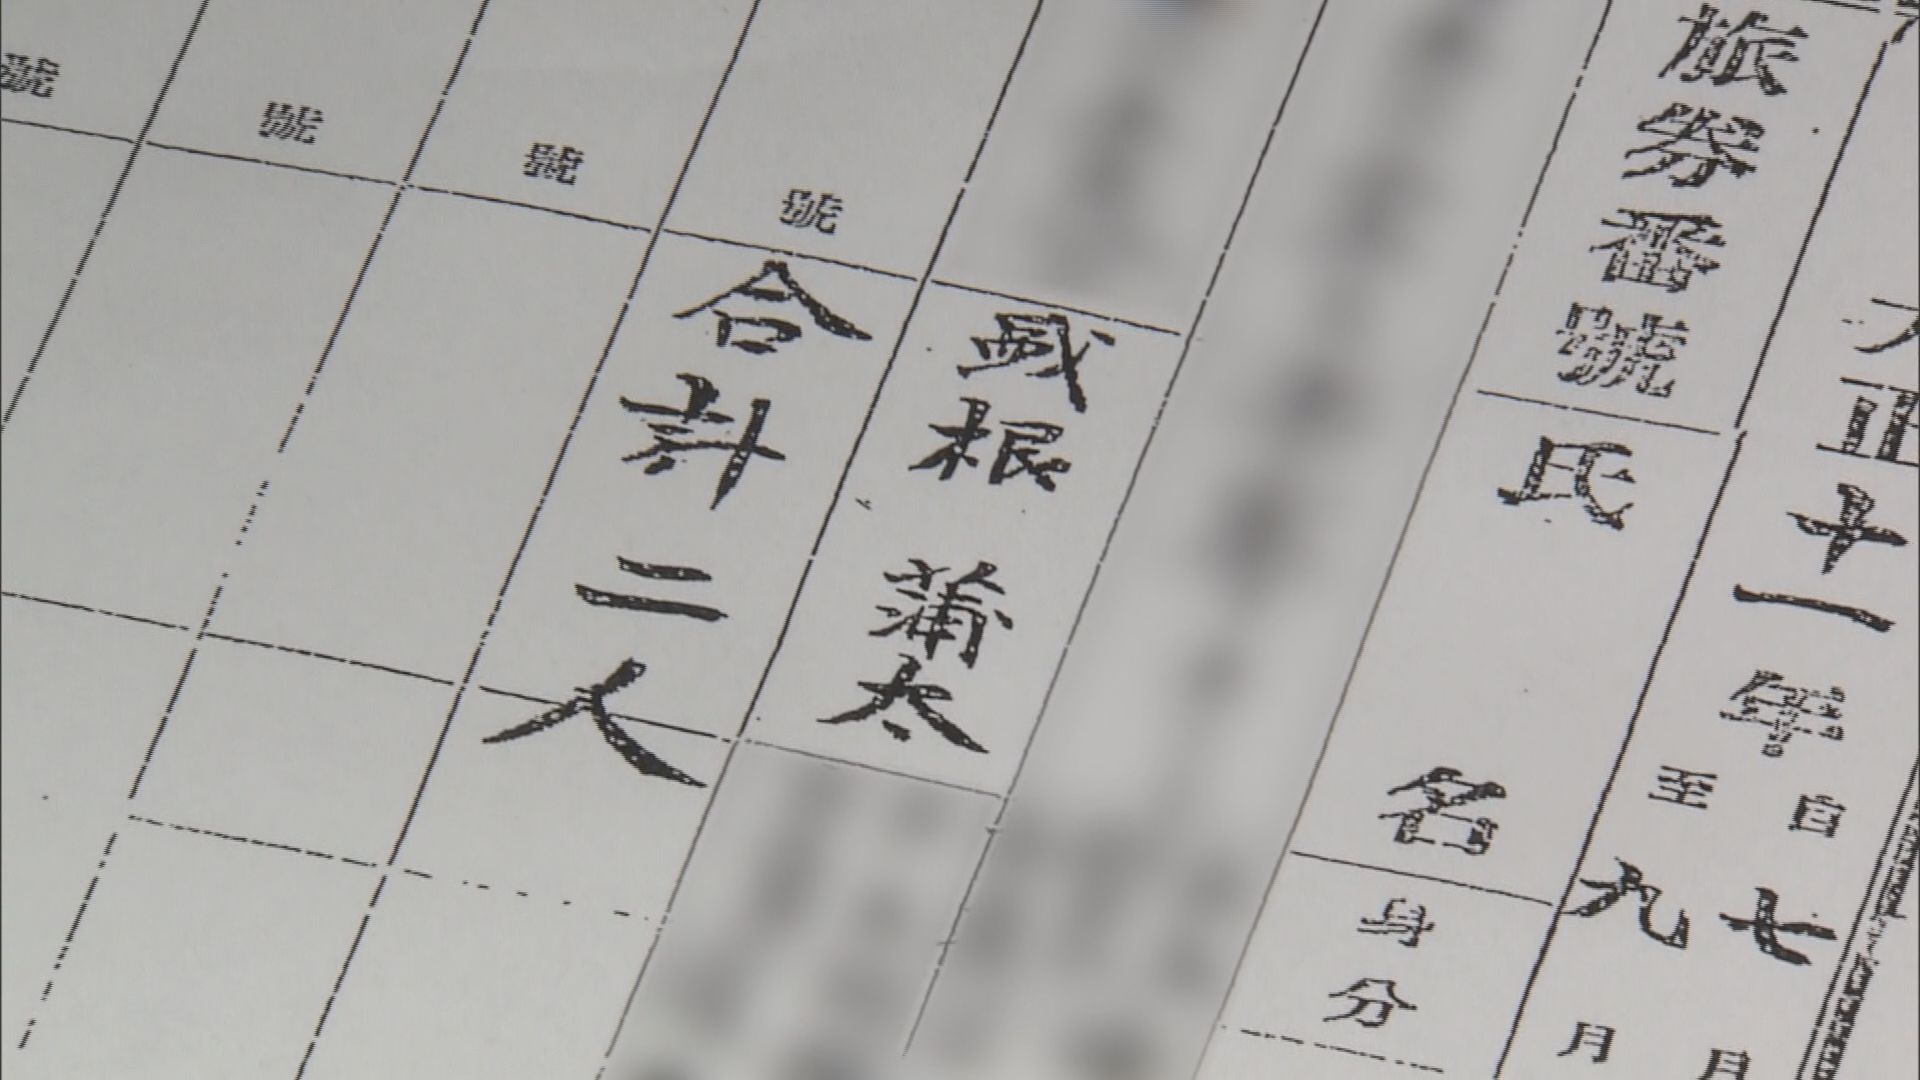 大正十一年 自七月
至九月
旅券番號 氏名 身分
盛根 蒲太
號 合計二人
號
號
號